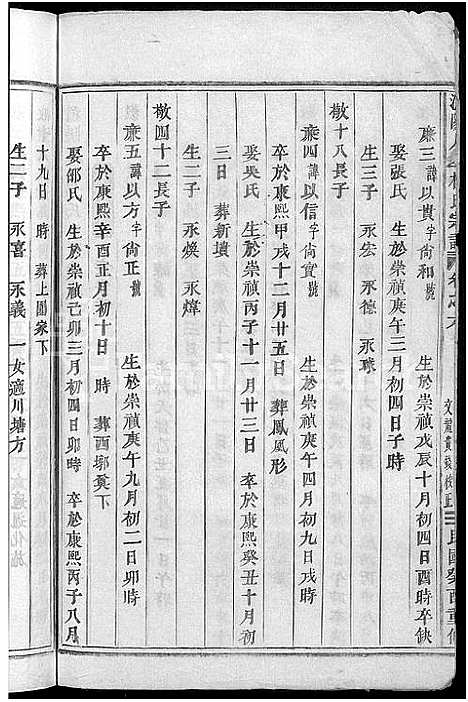 氏宗譜 卷之六
民國癸酉重修
廉三 諱以貴字尙和號 生於崇禎戊辰十月初四日酉時卒缺
娶張氏 生於崇禎庚午三月初四日子時
生三子 永宏 永德 永球
檄十八長子
廉四 諱以信字尙實號 生於崇禎庚午四月初九日戌時
卒於康熙甲戌十二月廿五日 葬鳳凰形
娶吳氏 生於崇禎丙子十一月廿三日 卒於康熙癸丑十月初
三日 葬新墳
生二子 永煥 永煒
檄四十二長子
廉五 諱以方字尙正號 生於崇禎庚午九月初二日卯時
卒於康熙辛酉正月初十日 時 葬酉郭奠下
娶邵氏 生於崇禎己卯三月初四日卯時 卒於康熙丙子八月
十九日 時 葬上園冢下
生二子 永喜 永義 一女適川塘方